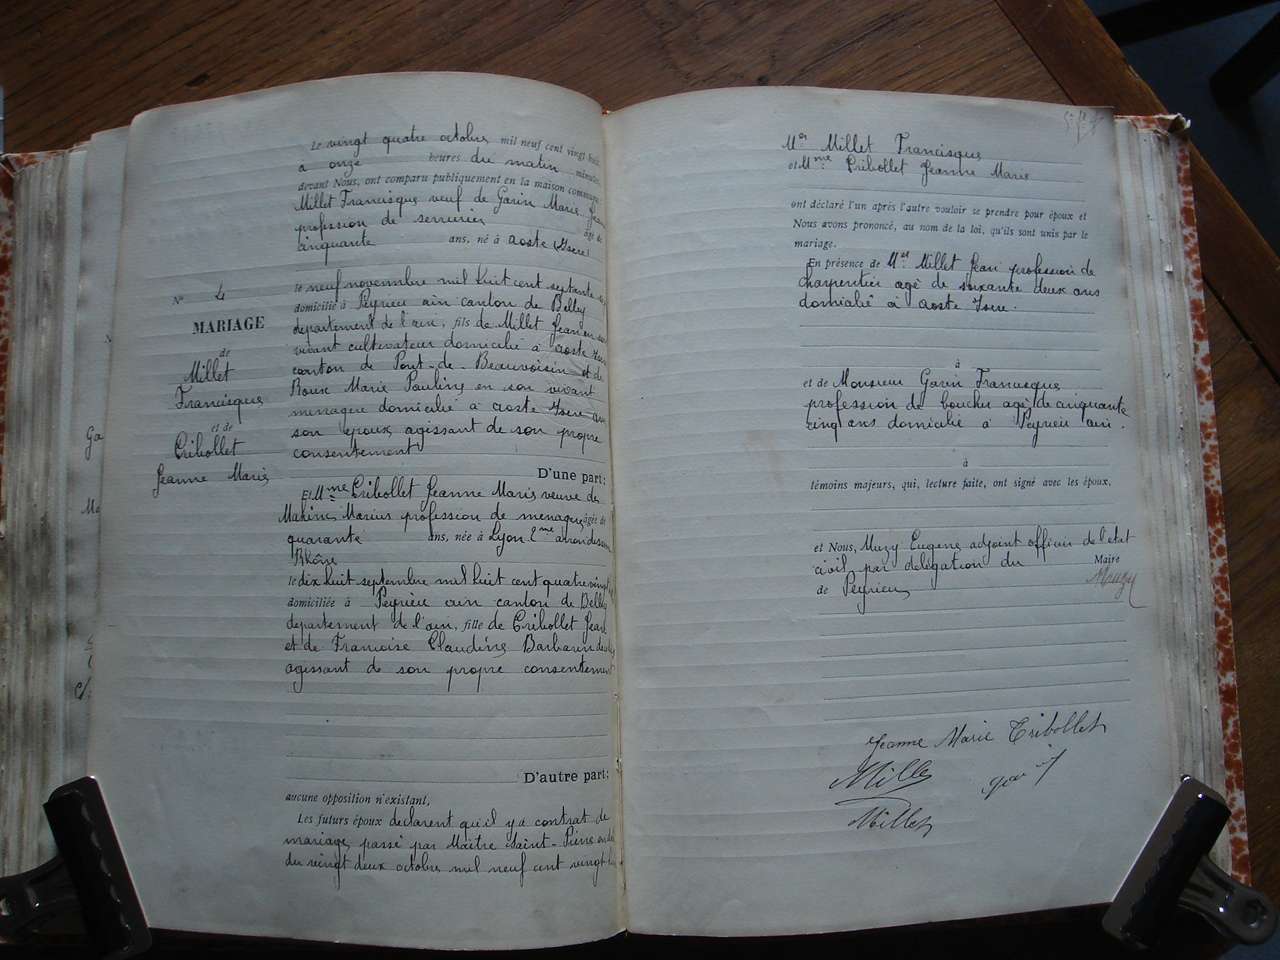 Le vingt quatre octobre mil neuf cent vingt
à onze heures du matin minutes
devant Nous, ont comparu publiquement en la maison commune
Millet Francisque veuf de Garin Marie
profession de serrurier âgé de
cinquante ans, né à Aoste (Isere)
le neuf novembre mil huit cent septante
domicilié à Peyrieu ain canton de Belley
departement de l'ain, fils de Millet Jean en son
vivant cultivateur domicilié à Aoste Isere
canton de Pont-de-Beauvoisin et de
Roux Marie Pauline en son vivant
menagere domicilié à Aoste Isere
son epoux agissant de son propre
consentement
D'une part:
N° 4
MARIAGE
de
Millet
Francisque
et de
Tribollet
Jeanne Marie
Et Mme Tribollet Jeanne Marie veuve de
Marius profession de menagere âgée de
quarante ans, née à Lyon 2me arrondissem
Rhône
le dix huit septembre mil huit cent quatre vingt
domiciliée à Peyrieu ain canton de Belley
departement de l'ain, fille de Tribollet Jean
et de Francoise Claudine Barbarin
agissant de son propre consentement
D'autre part:
aucune opposition n'existant,
Les futurs époux declarent qu'il y a contrat de
mariage passé par Maitre Saint-Pierre
du vingt deux octobre mil neuf cent vingt
Mer Millet Francisque
et Mme Tribollet Jeanne Marie
ont déclaré l'un après l'autre vouloir se prendre pour époux et
Nous avons prononcé, au nom de la loi, qu'ils sont unis par le
mariage.
En présence de Mer Millet Jean profession de
charpentier agé de soixante deux ans
domicilié à Aoste Isere.
à
et de Monsieur Garin Francisque
profession de boucher agé de cinquante
cinq ans domicilié à Peyrieu ain.
à
témoins majeurs, qui, lecture faite, ont signé avec les époux,
et Nous, Muzy Eugene adjoint officier de l'etat
civil par delegation du Maire
de Peyrieu Muzy
Jeanne Marie Tribollet
Millet
Millet